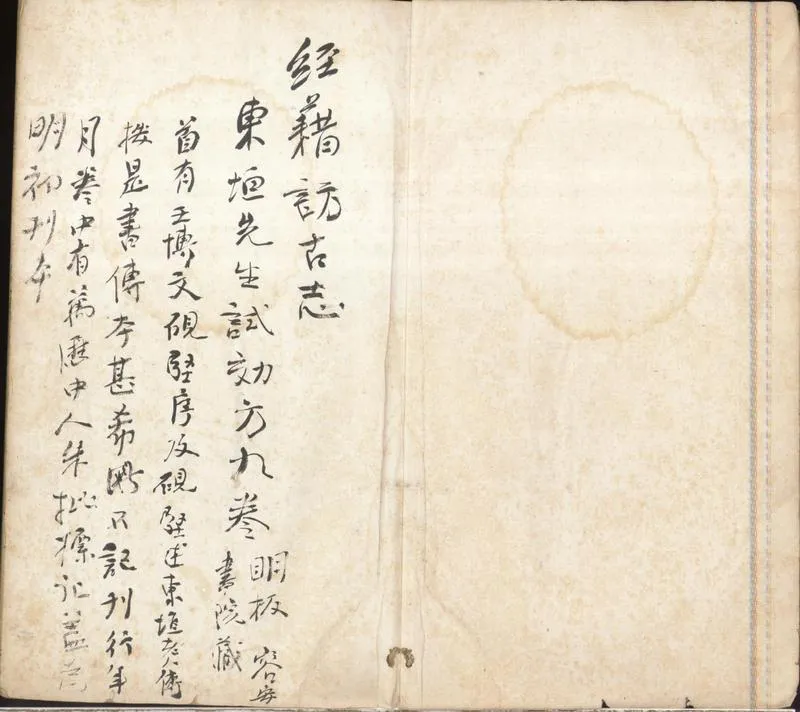 經藉訪古志
東垣先生試効方九卷 明板 容安
書院藏
首有王博文硯堅序及硯堅述東垣老人傳
按是書傳本甚希 記刊行年
月卷中有萬歷中人朱批標記蓋為
明初刊本